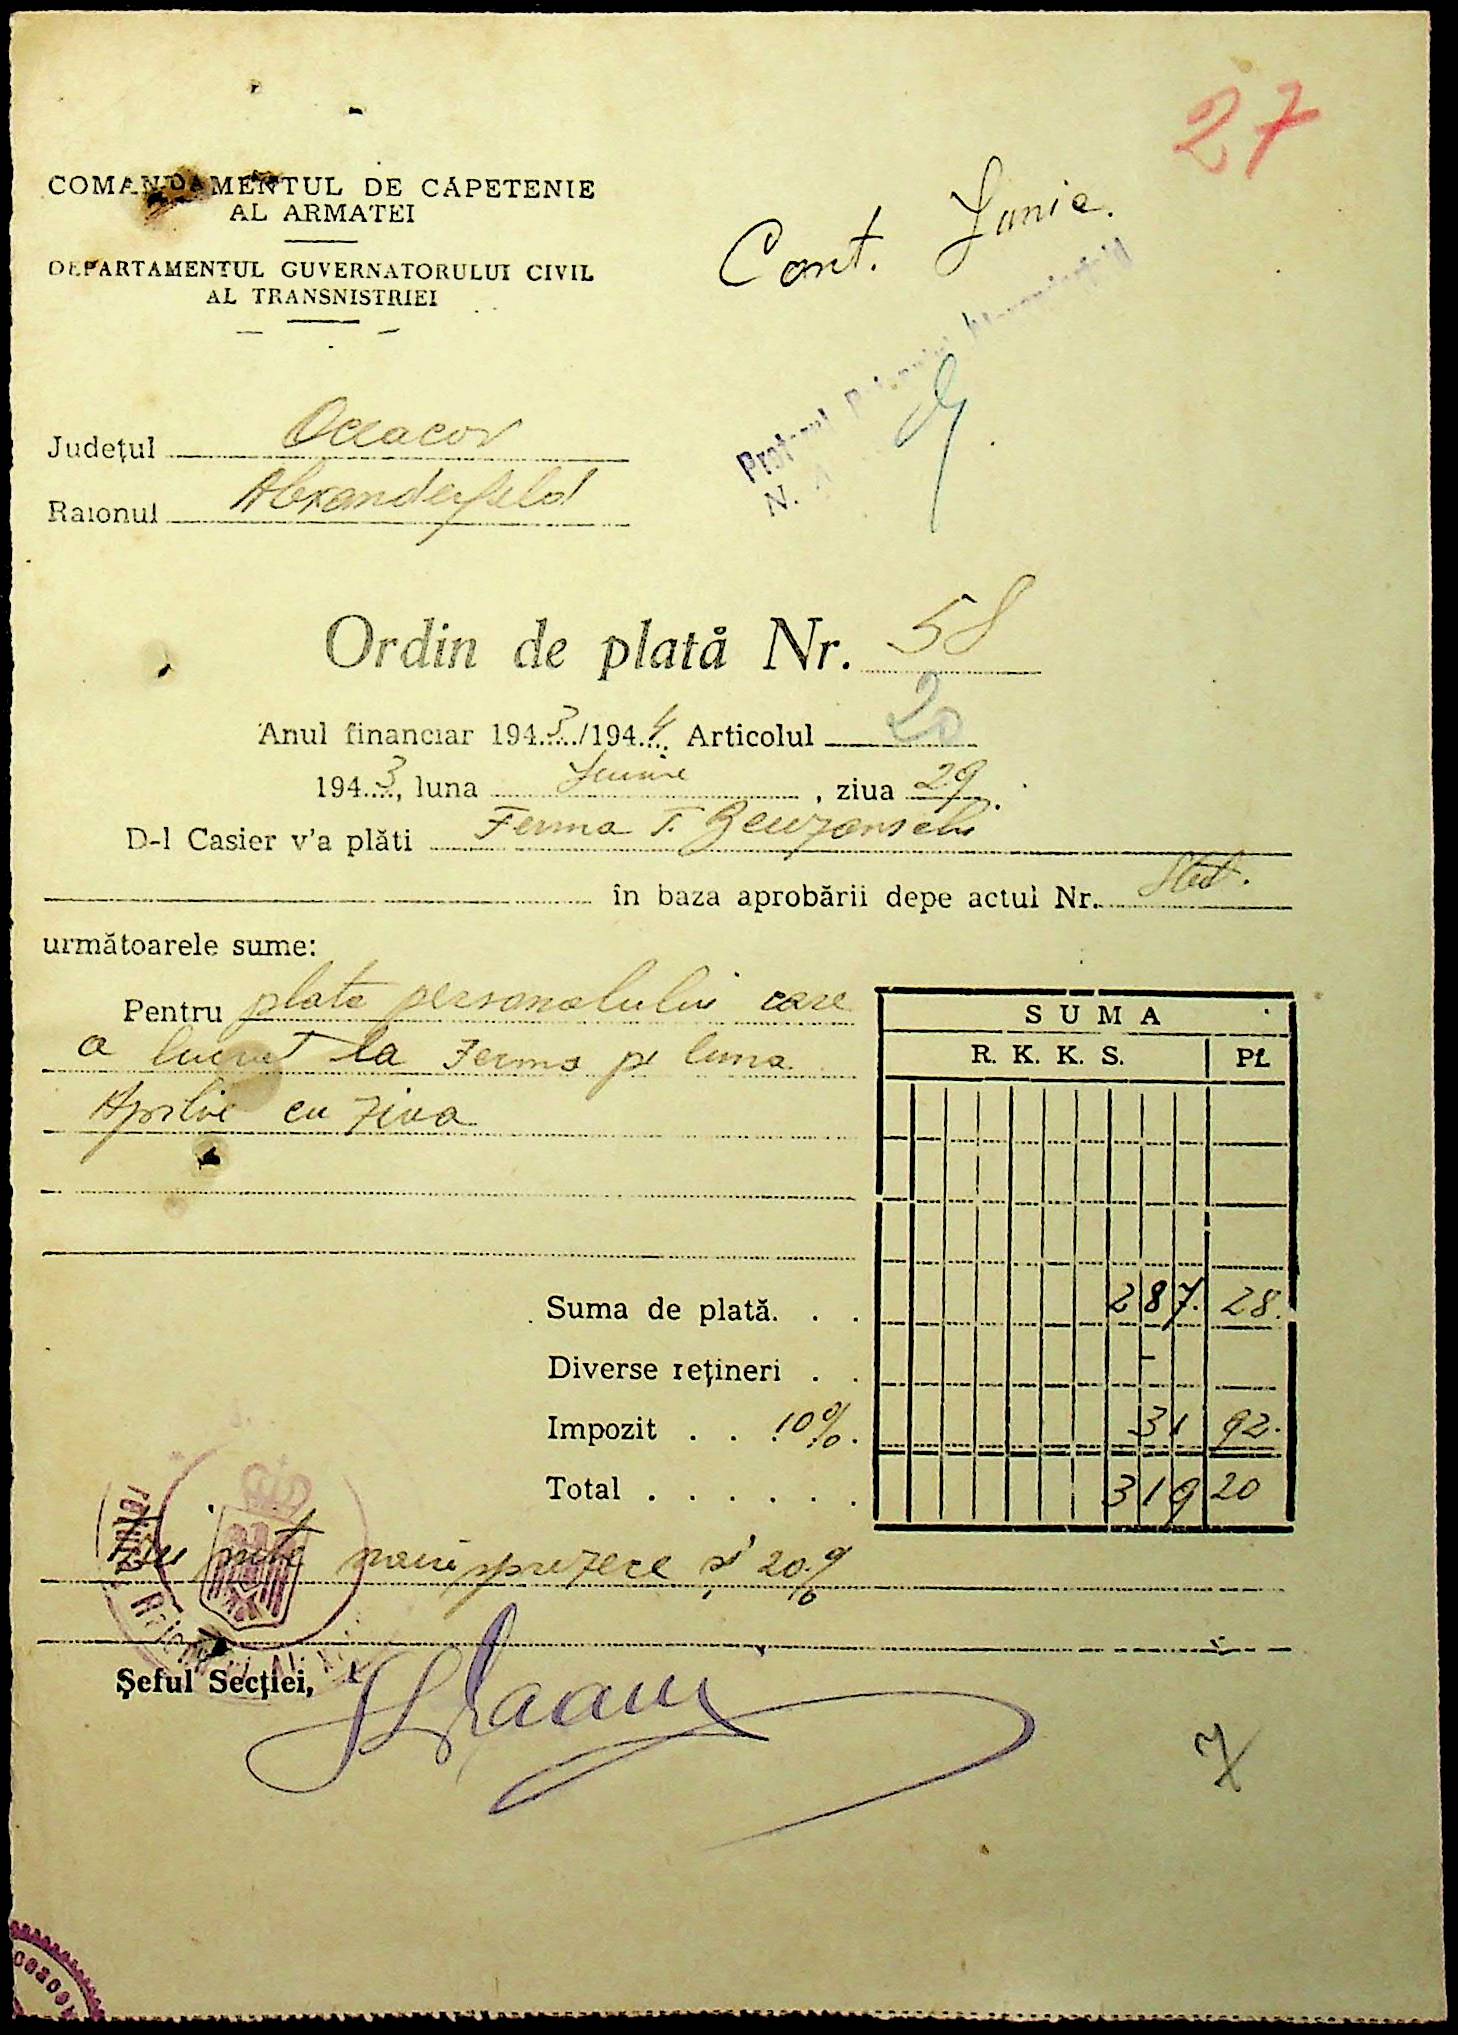 27
COMANDAMENTUL DE CĂPETENIE
AL ARMATEI
DEPARTAMENTUL GUVERNATORULUI CIVIL
AL TRANSNISTRIEI
Cont. Junie.
Județul Oceacov
Raionul Alexanderfeld
Ordin de plată Nr. 58
Anul financiar 1943/1944 Articolul 20
1943, luna Iunie, ziua 29.
D-l Casier v'a plăti Ferma T.
în baza aprobării depe actul Nr. Stat.
următoarele sume:
Pentru plata personalului care
a lucrat la Ferma pe luna
Aprilie cu ziua
SUMA
R. K. K. S. Pf.
Suma de plată. . . 287. 28.
Diverse rețineri . . -
Impozit . . 10%. 31 92.
Total . . . . . . 319 20
Trei sute nouăsprezece și 20%
Șeful Secției,
7